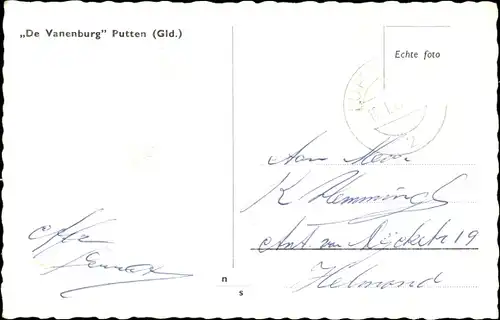 „De Vanenburg” Putten (Gld.)
Echte foto
Aan Mevr
K Hemmings
Ant. van Dijckstr 19
Helmond
n
s